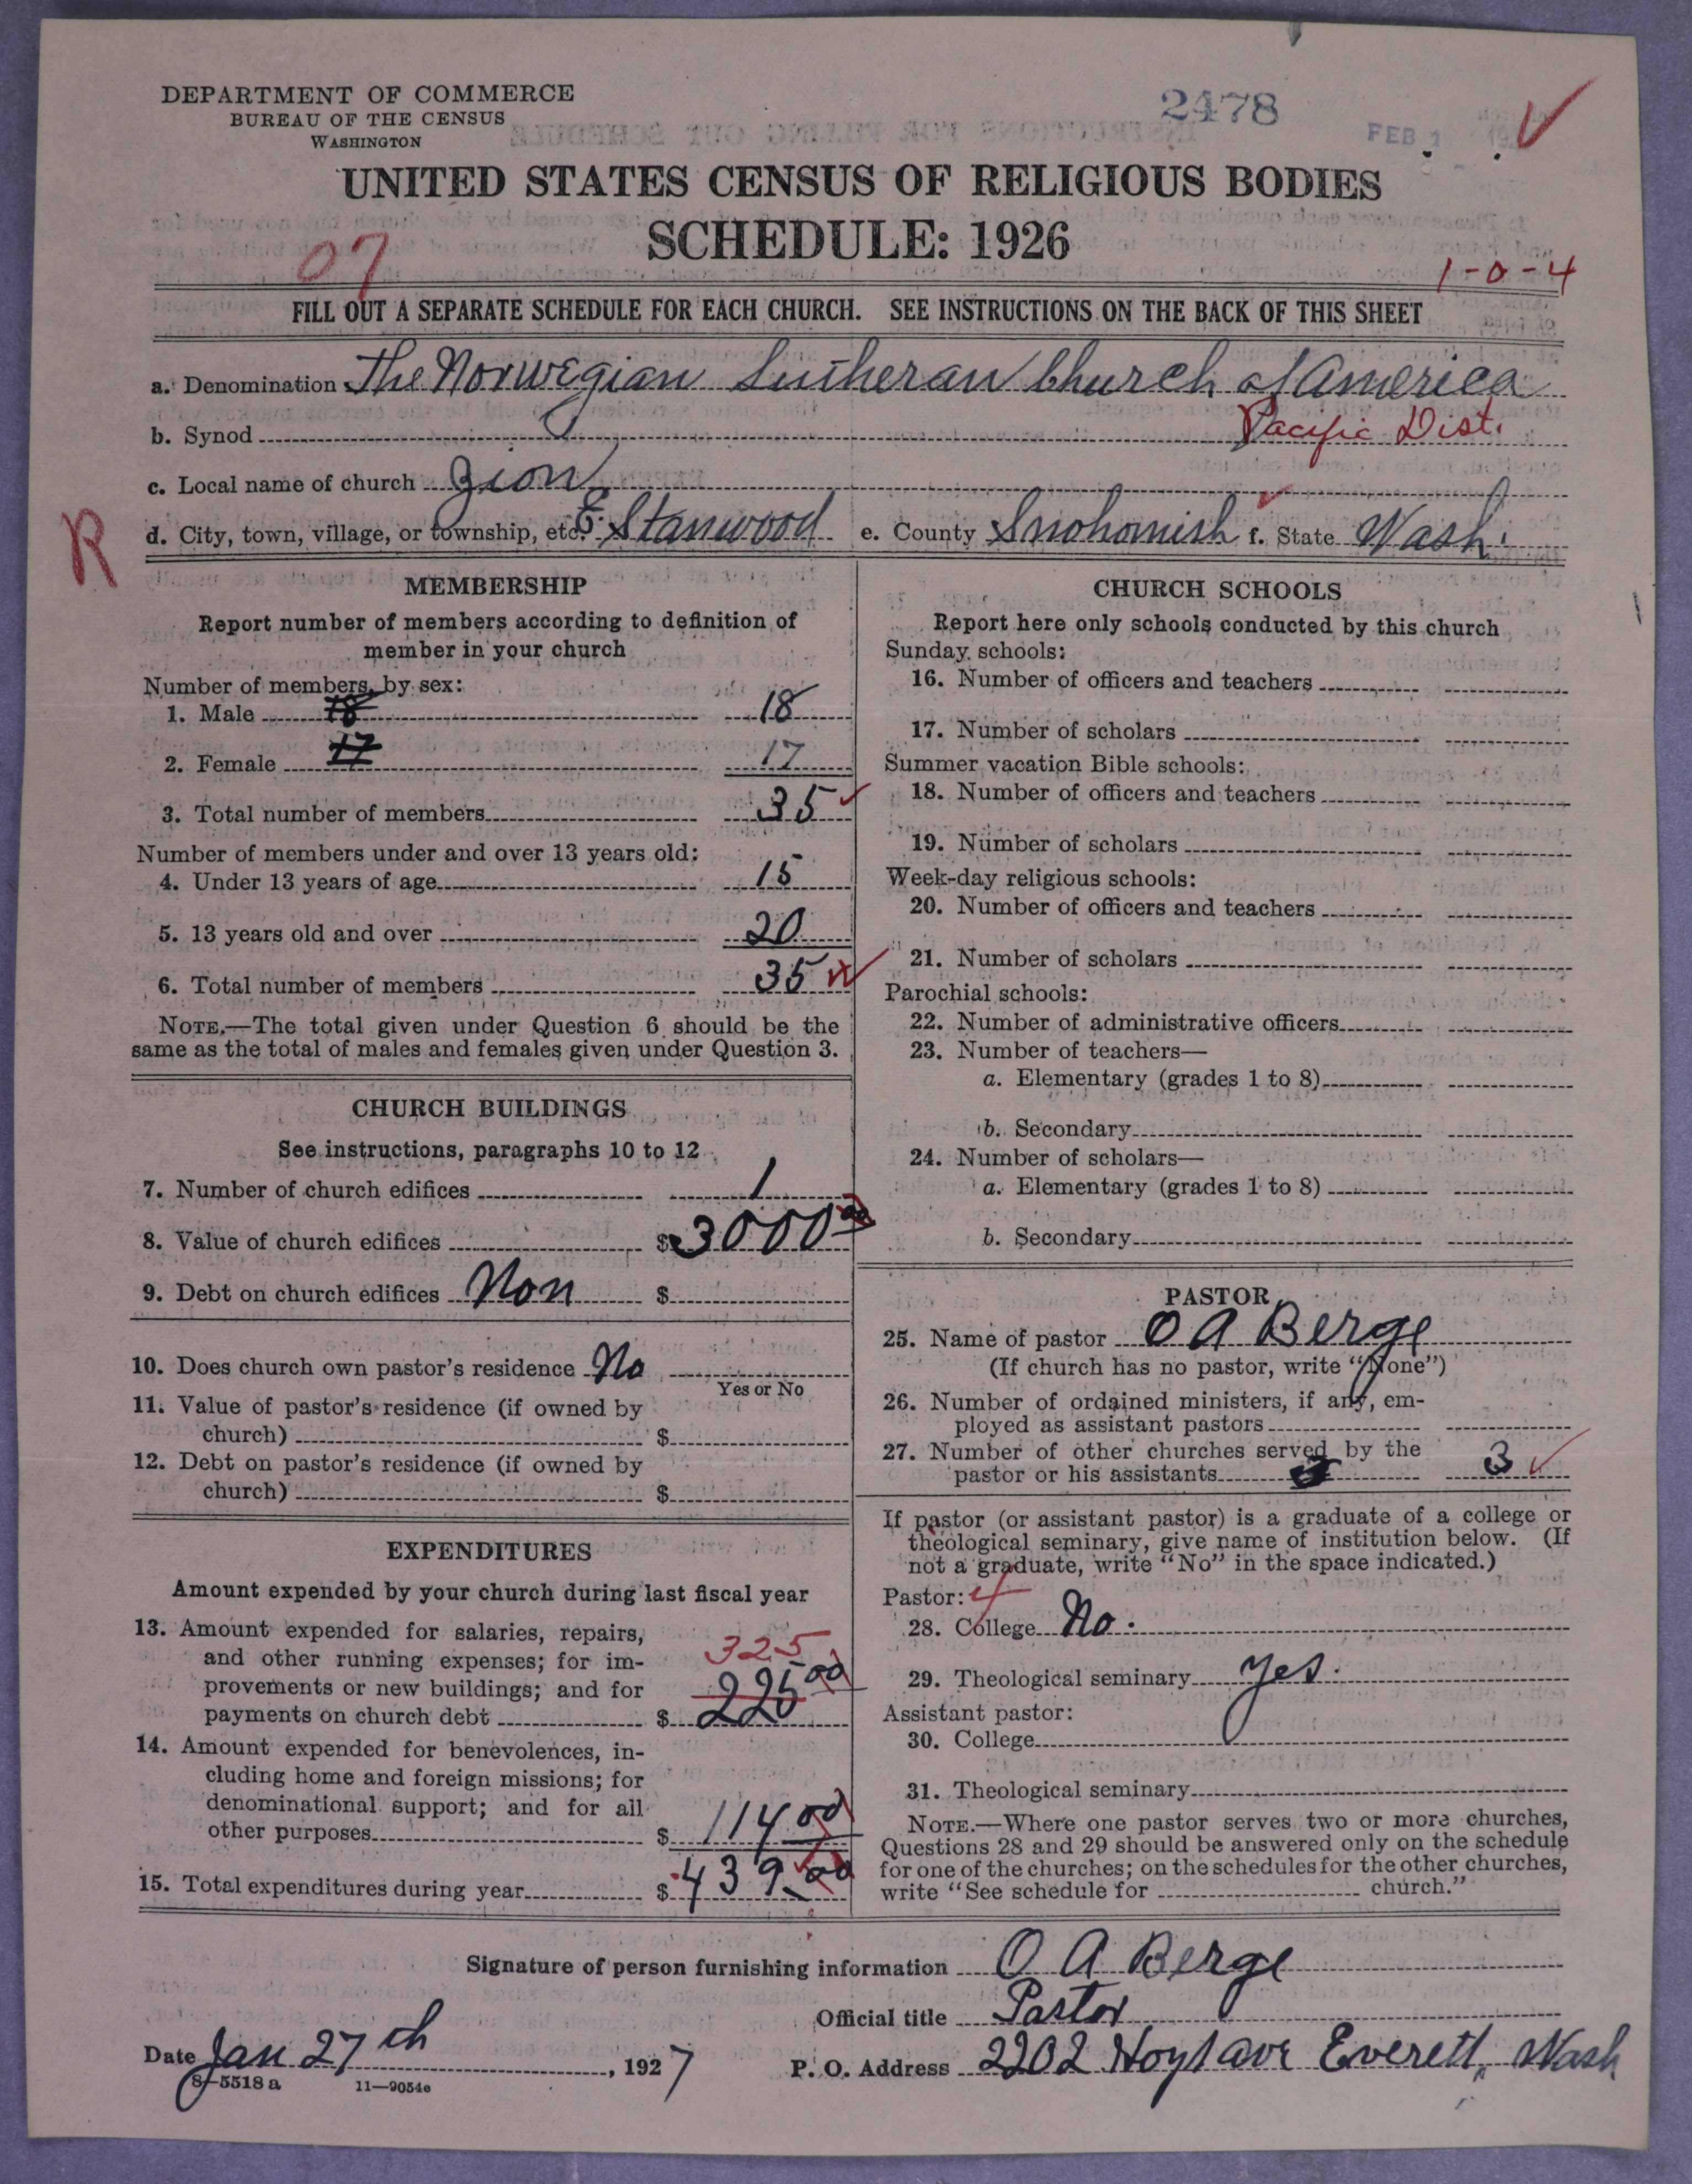 DEPARTMENT OF COMMERCE
BUREAU OF THE CENSUS
WASHINGTON
2478
FEB 1
UNITED STATES CENSUS OF RELIGIOUS BODIES
SCHEDULE: 1926
07
1-0-4
FILL OUT A SEPARATE SCHEDULE FOR EACH CHURCH. SEE INSTRUCTIONS ON THE BACK OF THIS SHEET
a. Denomination The Norwegian Lutheran Church of America
b. Synod Pacific Dist.
c. Local name of church Zion
R
d. City, town, village, or township, etc. E. Stanwood e. County Snohomish f. State Wash.
MEMBERSHIP
Report number of members according to definition of
member in your church
Number of members, by sex:
1. Male 18 18
2. Female 17 17
3. Total number of members 35
Number of members under and over 13 years old:
4. Under 13 years of age 15
5. 13 years old and over 20
6. Total number of members 35
NOTE.—The total given under Question 6 should be the
same as the total of males and females given under Question 3.
CHURCH BUILDINGS
See instructions, paragraphs 10 to 12
7. Number of church edifices 1
8. Value of church edifices $ 3000 00
9. Debt on church edifices Non $
10. Does church own pastor's residence No
Yes or No
11. Value of pastor's residence (if owned by
church) $
12. Debt on pastor's residence (if owned by
church) $
EXPENDITURES
Amount expended by your church during last fiscal year
13. Amount expended for salaries, repairs,
and other running expenses; for im-
provements or new buildings; and for
payments on church debt $ 225 00
325
14. Amount expended for benevolences, in-
cluding home and foreign missions; for
denominational support; and for all
other purposes $ 114 00
15. Total expenditures during year $ 439.00
CHURCH SCHOOLS
Report here only schools conducted by this church
Sunday schools:
16. Number of officers and teachers
17. Number of scholars
Summer vacation Bible schools:
18. Number of officers and teachers
19. Number of scholars
Week-day religious schools:
20. Number of officers and teachers
21. Number of scholars
Parochial schools:
22. Number of administrative officers
23. Number of teachers—
a. Elementary (grades 1 to 8)
b. Secondary
24. Number of scholars—
a. Elementary (grades 1 to 8)
b. Secondary
PASTOR
25. Name of pastor O A Berge
(If church has no pastor, write "None")
26. Number of ordained ministers, if any, em-
ployed as assistant pastors
27. Number of other churches served by the
pastor or his assistants 3
If pastor (or assistant pastor) is a graduate of a college or
theological seminary, give name of institution below. (If
not a graduate, write "No" in the space indicated.)
Pastor: 4
28. College No.
29. Theological seminary Yes.
Assistant pastor:
30. College
31. Theological seminary
NOTE.—Where one pastor serves two or more churches,
Questions 28 and 29 should be answered only on the schedule
for one of the churches; on the schedules for the other churches,
write "See schedule for church."
Signature of person furnishing information O A Berge
Official title Pastor
Date Jan 27th, 1927 P. O. Address 2202 Hoyt ave Everett, Wash
8-5518a 11—9054e